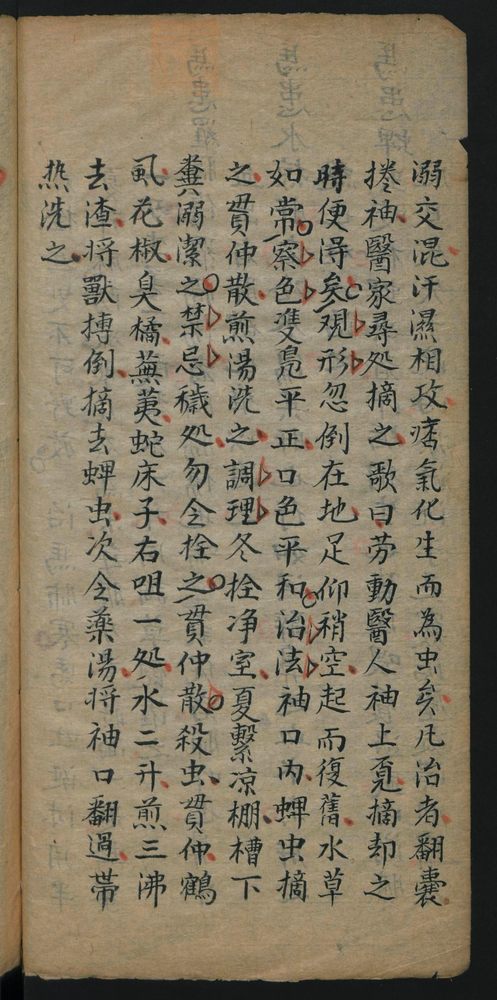 溺交混汗濕相攻瘀氣化生而為虫矣凡治者翻囊
捲袖醫家尋处摘之歌曰劳動醫人袖上覔摘却之
時便得矣观形忽倒在地足仰稍空起而復舊水草
如常察色雙鳧平正口色平和治法袖口內蜱虫摘
之貫仲散煎湯洗之調理冬拴净室夏繫凉棚槽下
糞溺潔之禁忌穢处勿令拴之貫仲散殺虫貫仲鶴
虱花椒臭橘蕪荑蛇床子右咀一处水二升煎三沸
去渣将獸摶倒摘去蜱虫次令藥湯将袖口翻過帶
热洗之